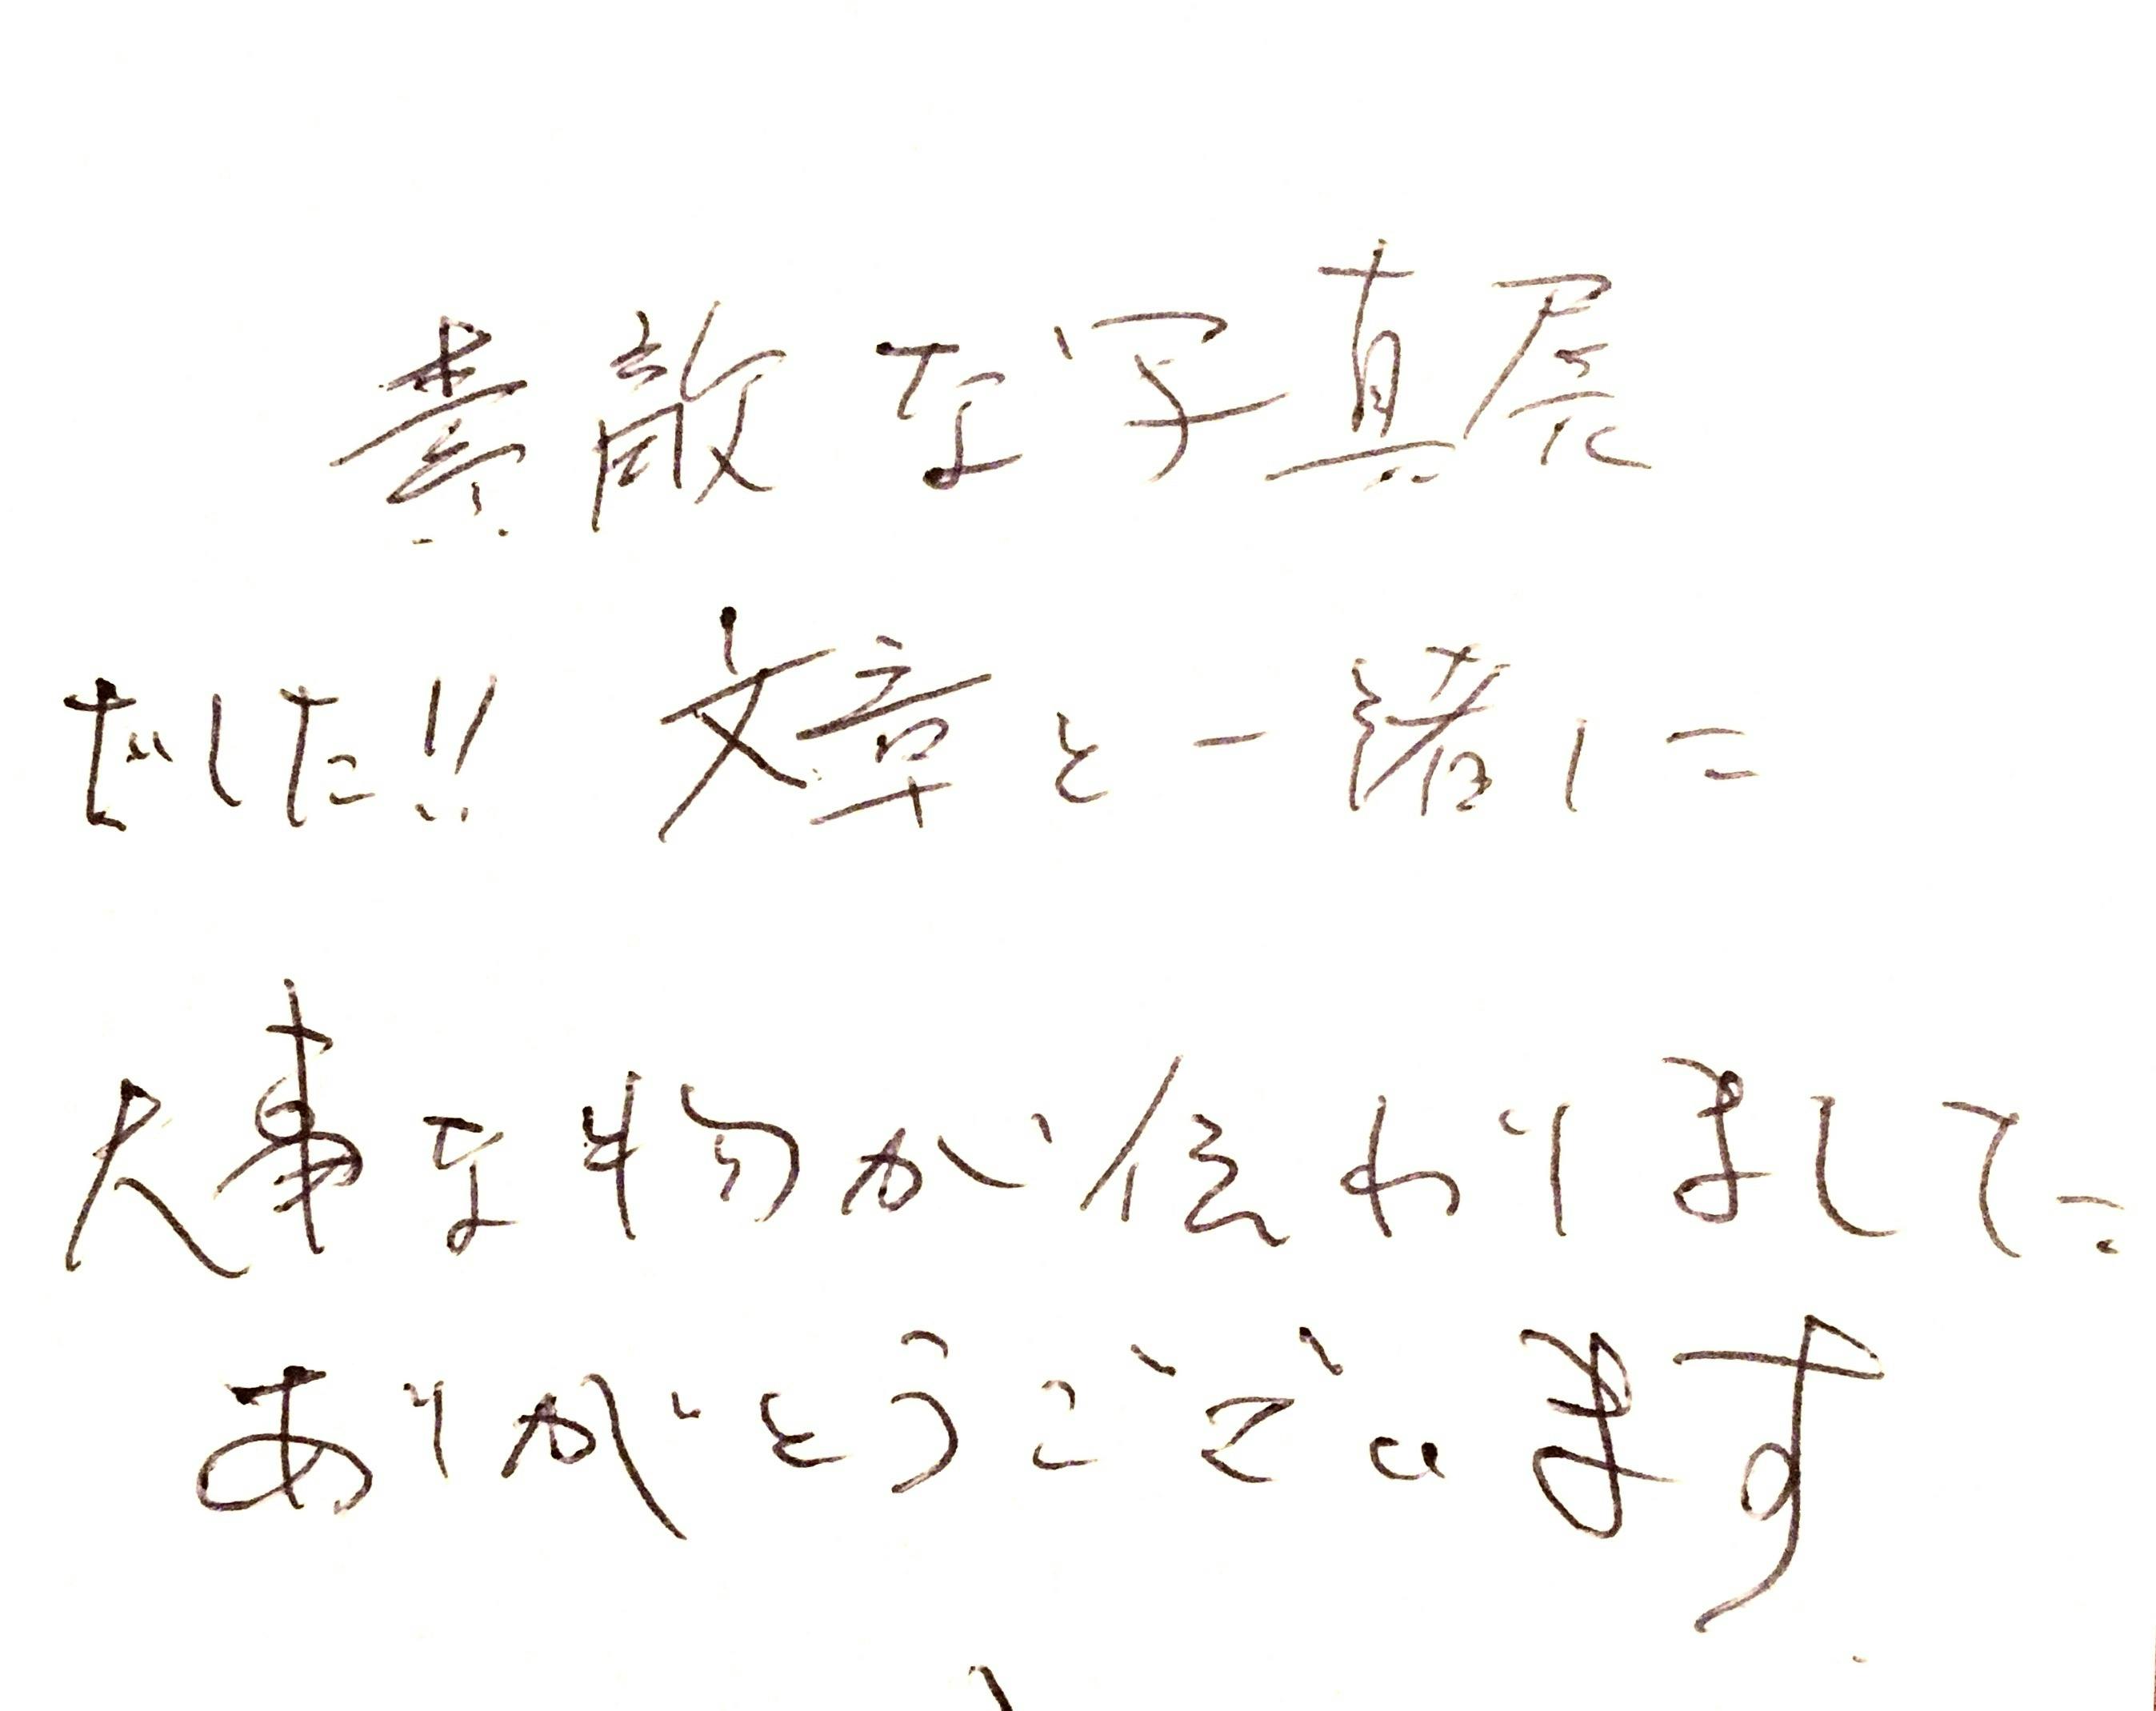 素敵な写真展
でした!! 文章と一緒に
大事な物が伝わりました
ありがとうございます